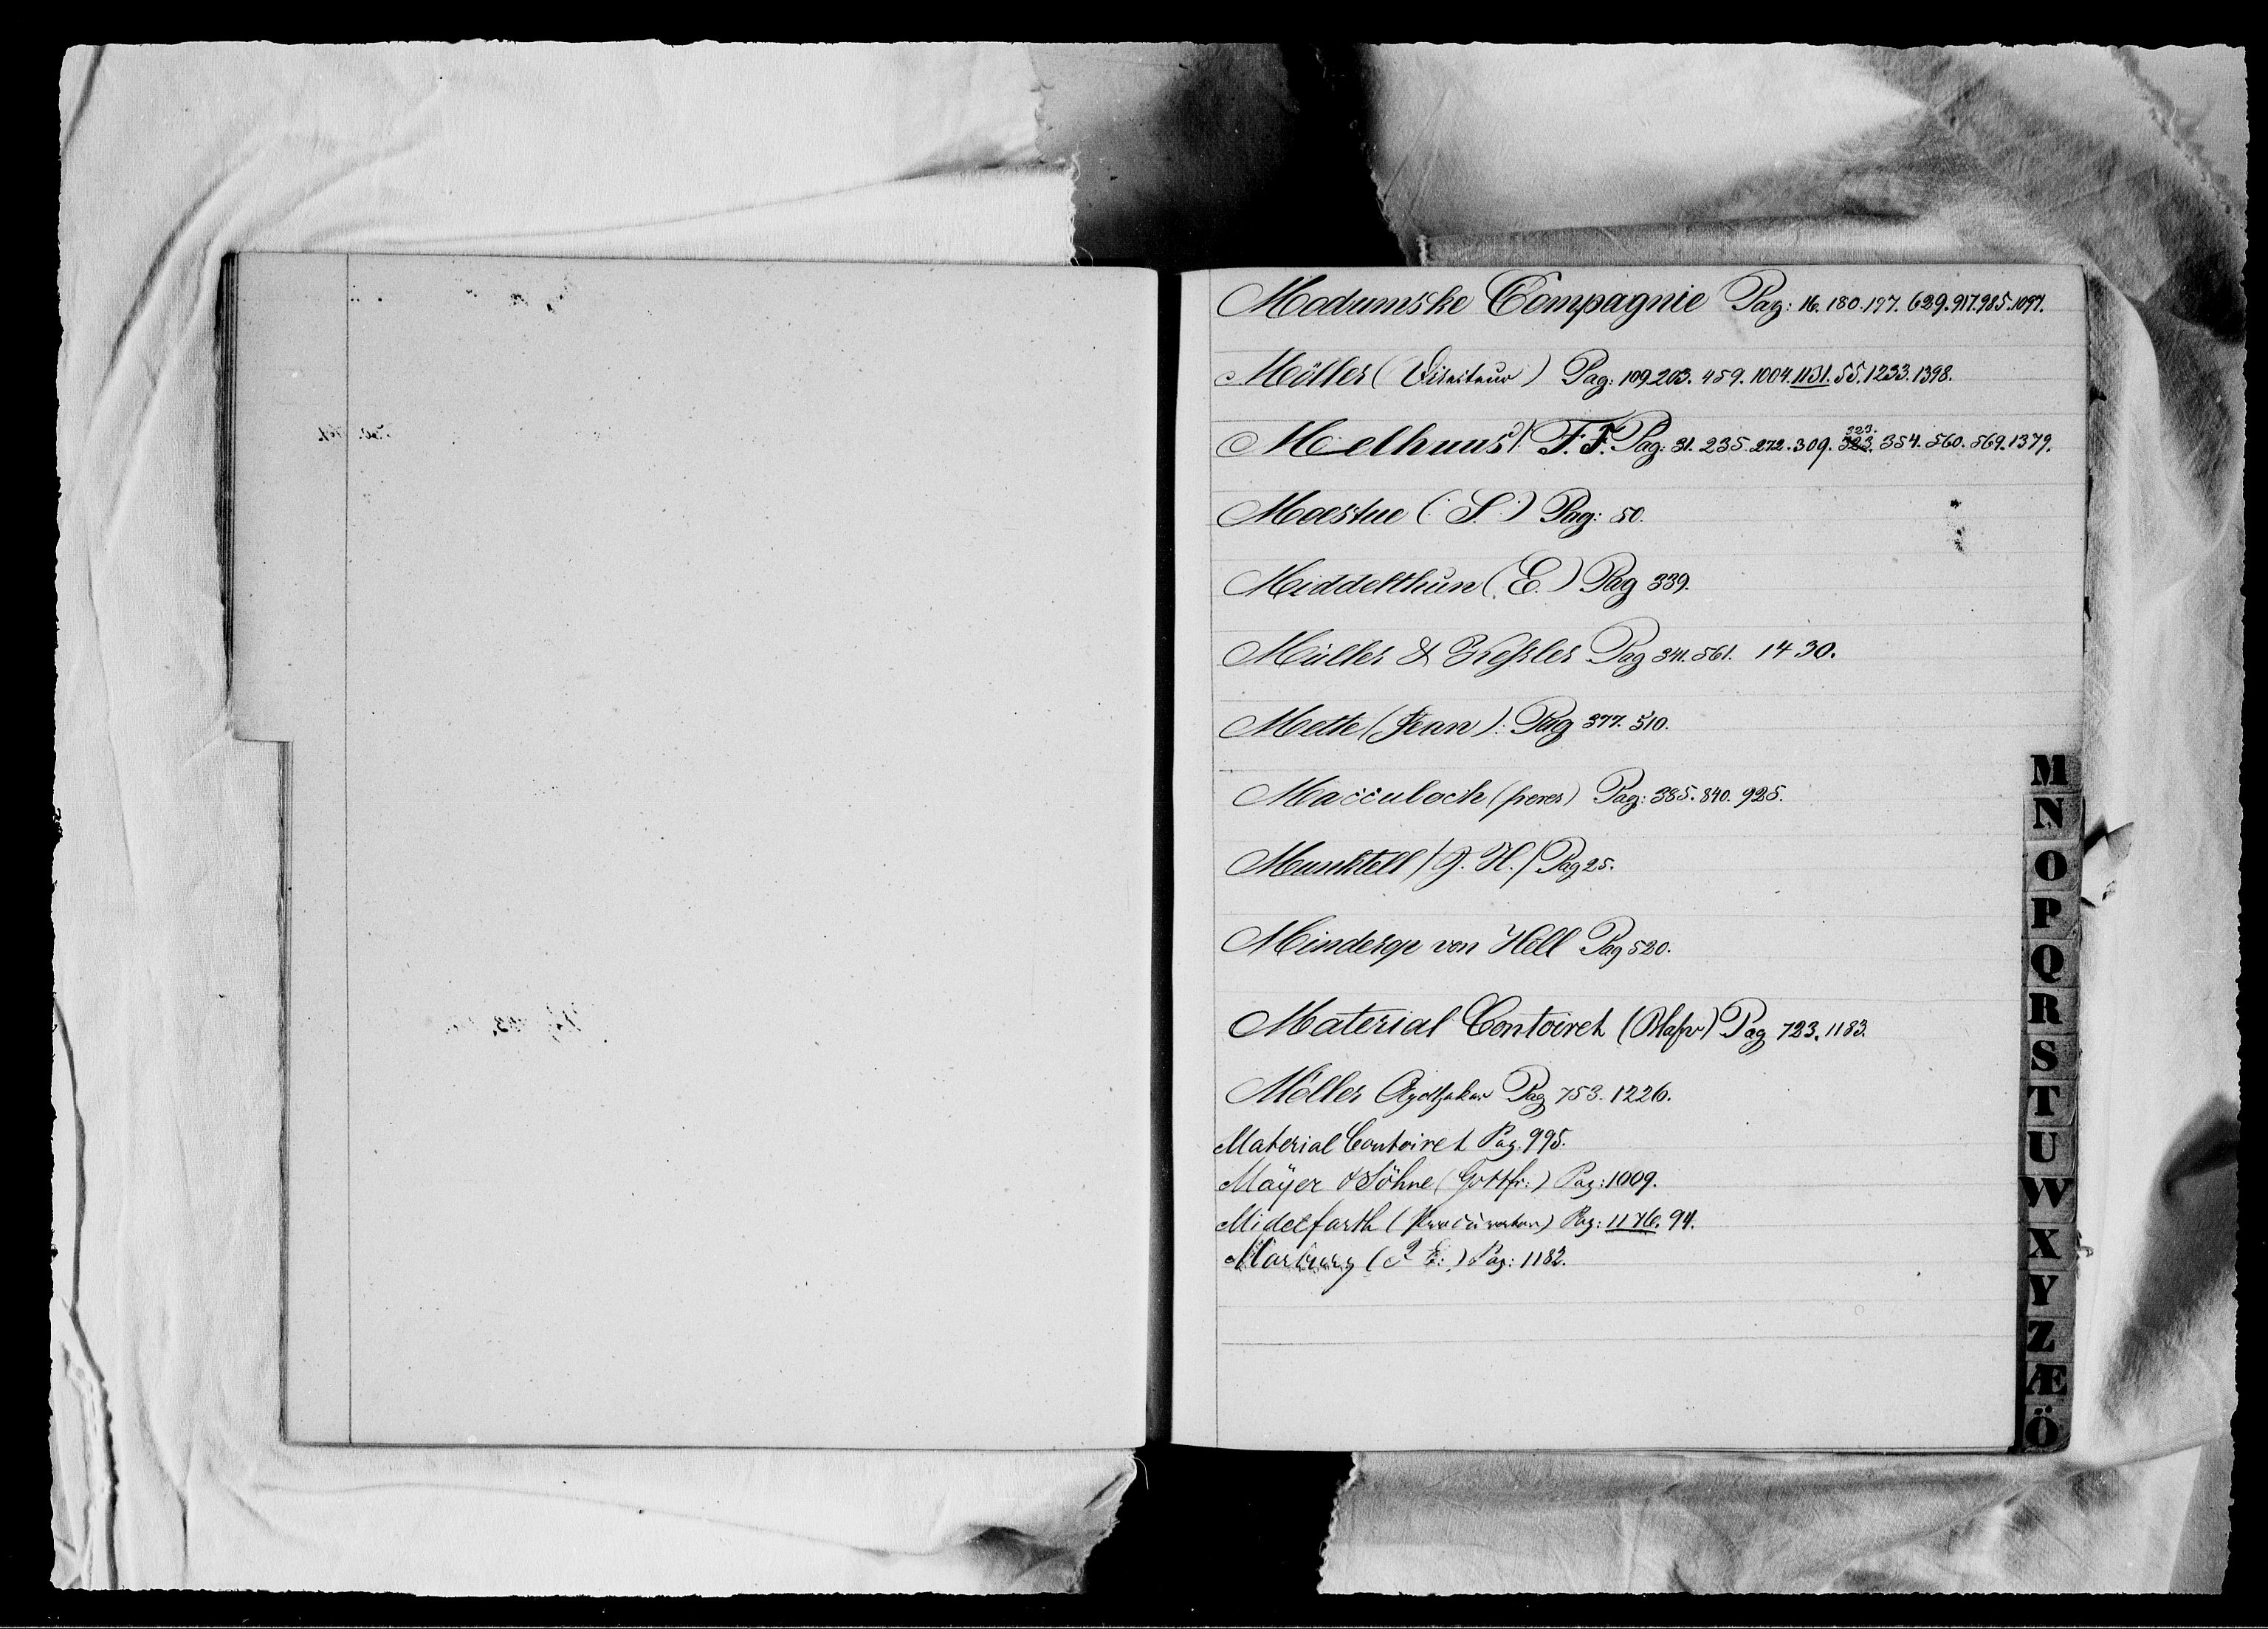 Modumske Compagnie Pag: 16. 180. 197. 629. 917. 985. 1097.
Möller (Directeur) Pag: 109. 203. 459. 1004. 1131. 55. 1233. 1398.
323.
Melhuus F. F. Pag: 31. 235. 272. 309. 323. 354. 560. 569. 1379.
Moestue (S.) Pag: 50.
Middelthun (E.) Pag 339.
Müller & Keßler Pag 341. 561. 1430.
Mette (Jenn). Pag 377. 510.
Macculoch (freres) Pag: 385. 840. 925.
Munktell /J. H./ Pag 25.
Minderop von Hell Pag 520.
Material Contoiret Pag 723. 1183.
Möller Apotheker Pag 753. 1226.
Material Contoiret Pag. 995.
Mayer & Söhne (Gottfr:) Pag: 1009.
Midelfarth (Procurator) Pag: 1176. 94.
Marburg Pag: 1182.
M
N
O
P
Q
R
S
T
U
W
X
Y
Z
Æ
Ö